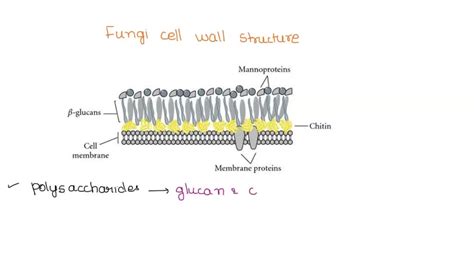 Fungi cell wall structure
Mannoproteins
β-glucans
Chitin
Cell
membrane
Membrane proteins
✓ polysaccharides → glucan & c